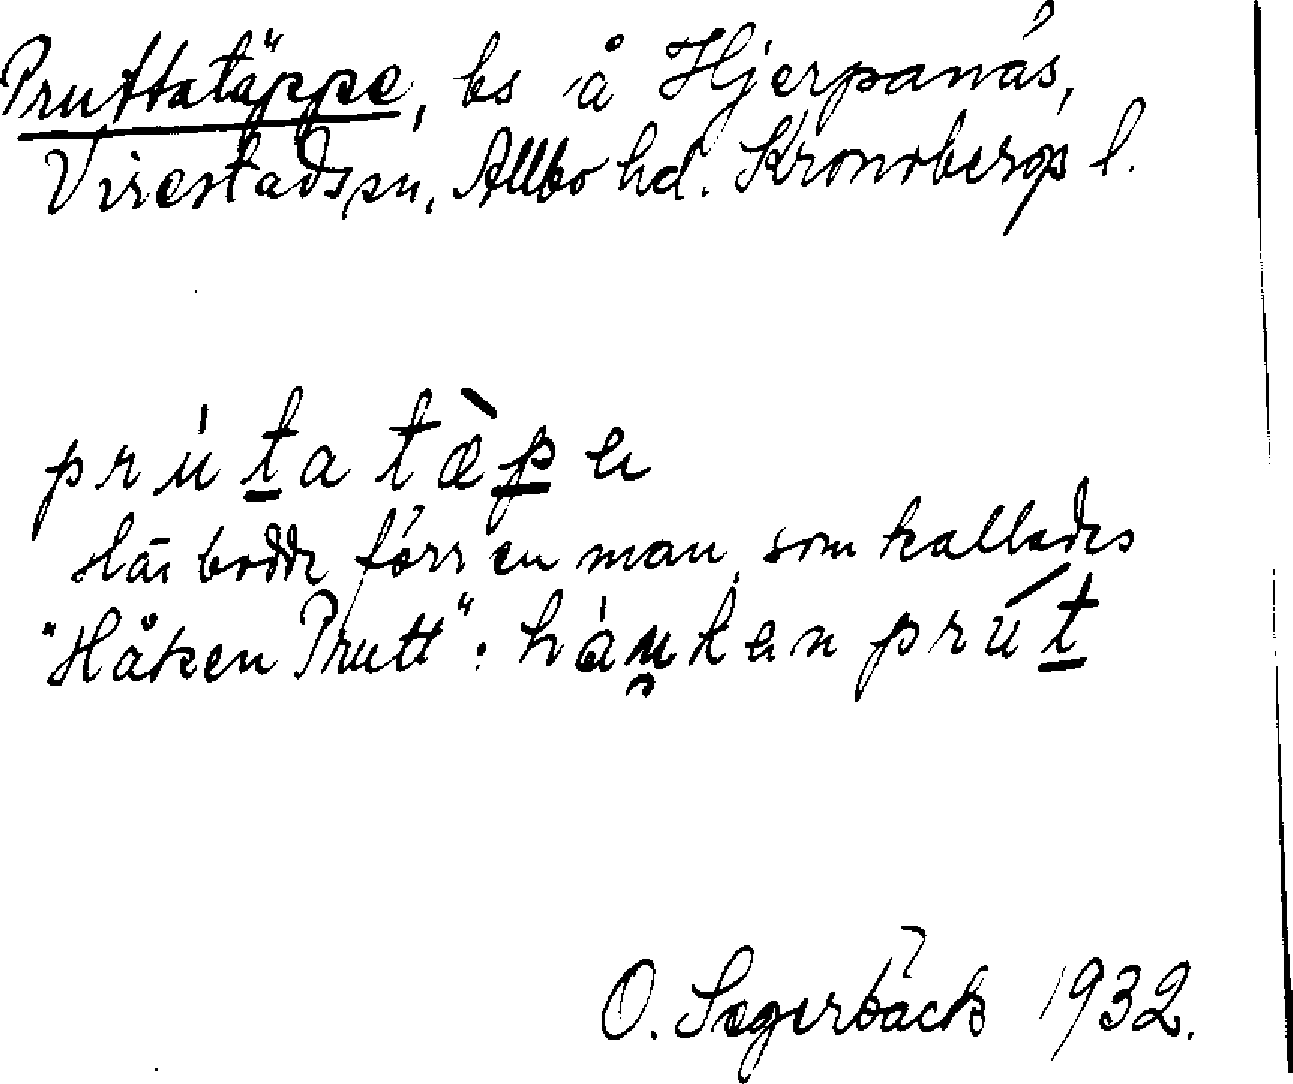 Pruttatäppe, bs å Hjerpanäs,
Virestads sn, Allbo hd. Kronobergs l.
prút̲a tæ̀p̲ ɐ
Här bodde förr en man, som kallades
"Håken Prutt": hàu̯kɐn prút̲
O. Segerbäck 1932.